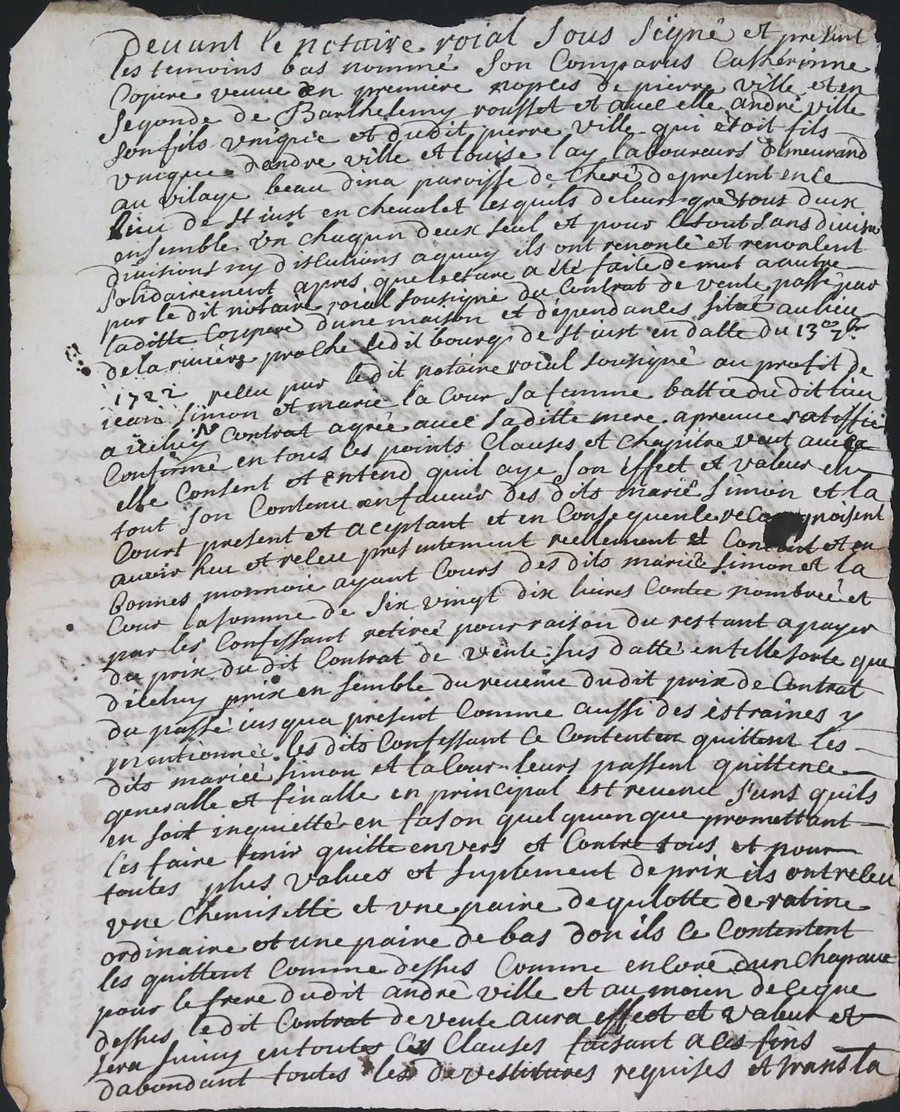 Devant le notaire roial sous signé et present
les temoins bas nommé son Comparus Catherinne
Copere veuve en premiere nopces de pierre ville et en
segonde de Barthelemy rousset et avec elle andré ville
son fils vnique et dudit pierre ville qui étoit fils
vnique dandre ville et louise lay laboureurs demeurand
au vilage beau dina paroisse de Cheré de present en ce
lieu de st iust en chevalet lesquils de leurs gré tous deux
ensemble vn chaqun deux seul et pour le tout sans division
divisions ny discutions aquoy ils ont renoncé et renoncent
solidairement apres que lecture a été faite de mot a autre
par le dit notaire roial sousigné du Contrat de vente passé par
laditte Coppere dune maison et dépendances situé au lieu
de la riviere proche ledit bourg de st iust en datte du 13e 7bre
1722 releu par ledit notaire roial sousigné au profit de
iean simon et marie la Cour sa femme battie dudit lieu
a iceluy Contrat agréé avec saditte mere apreuve ratiffié
Confirmé en tous ces points Clauses et chapitre veut avec
elle Consent et entend quil aye son effect et valeur en
tout son Contenu en faveur des dits marié simon et la
Court present et aceptant et en Consequence reconnoisent
avoir heu et releu presentement reellement et Contant et en
bonnes monnoie ayant Cours des dits mariée simon et la
Cour la somme de six vingt dix livres Contée nombreé et
par les Confessant retireé pour raison du restant a payer
du prix dudit Contrat de vente sus datté en telle sorte que
diceluy prix en semble du revenu dudit prix de Contrat
du passé iusqua present Comme aussi des estraines y
mentionneé les dits Confessant Ce Contenten quittent les
dits marieé simon et la Cour leurs passent quittence
generalle et finalle en principal est revenu sans quils
en soit inquietté en fason quel quonque promettant
les faire tenir quitte envers et Contre tous et pour
toutes plus values et suplement de prix ils ont releu
vne chemisette et vne paire de qulotte de ratine
ordinaire et une paire de bas don ils Ce Contentent
les quittent Comme dessus Comme encore dun chapaux
pour le frere dudit andré ville et au moien de ceque
dessus ledit Contrat de vente aura effect et valeur et
sera suivy en toutes Ces Clauses faisant a ces fins
dabondant toutes les devestitures requises et transla